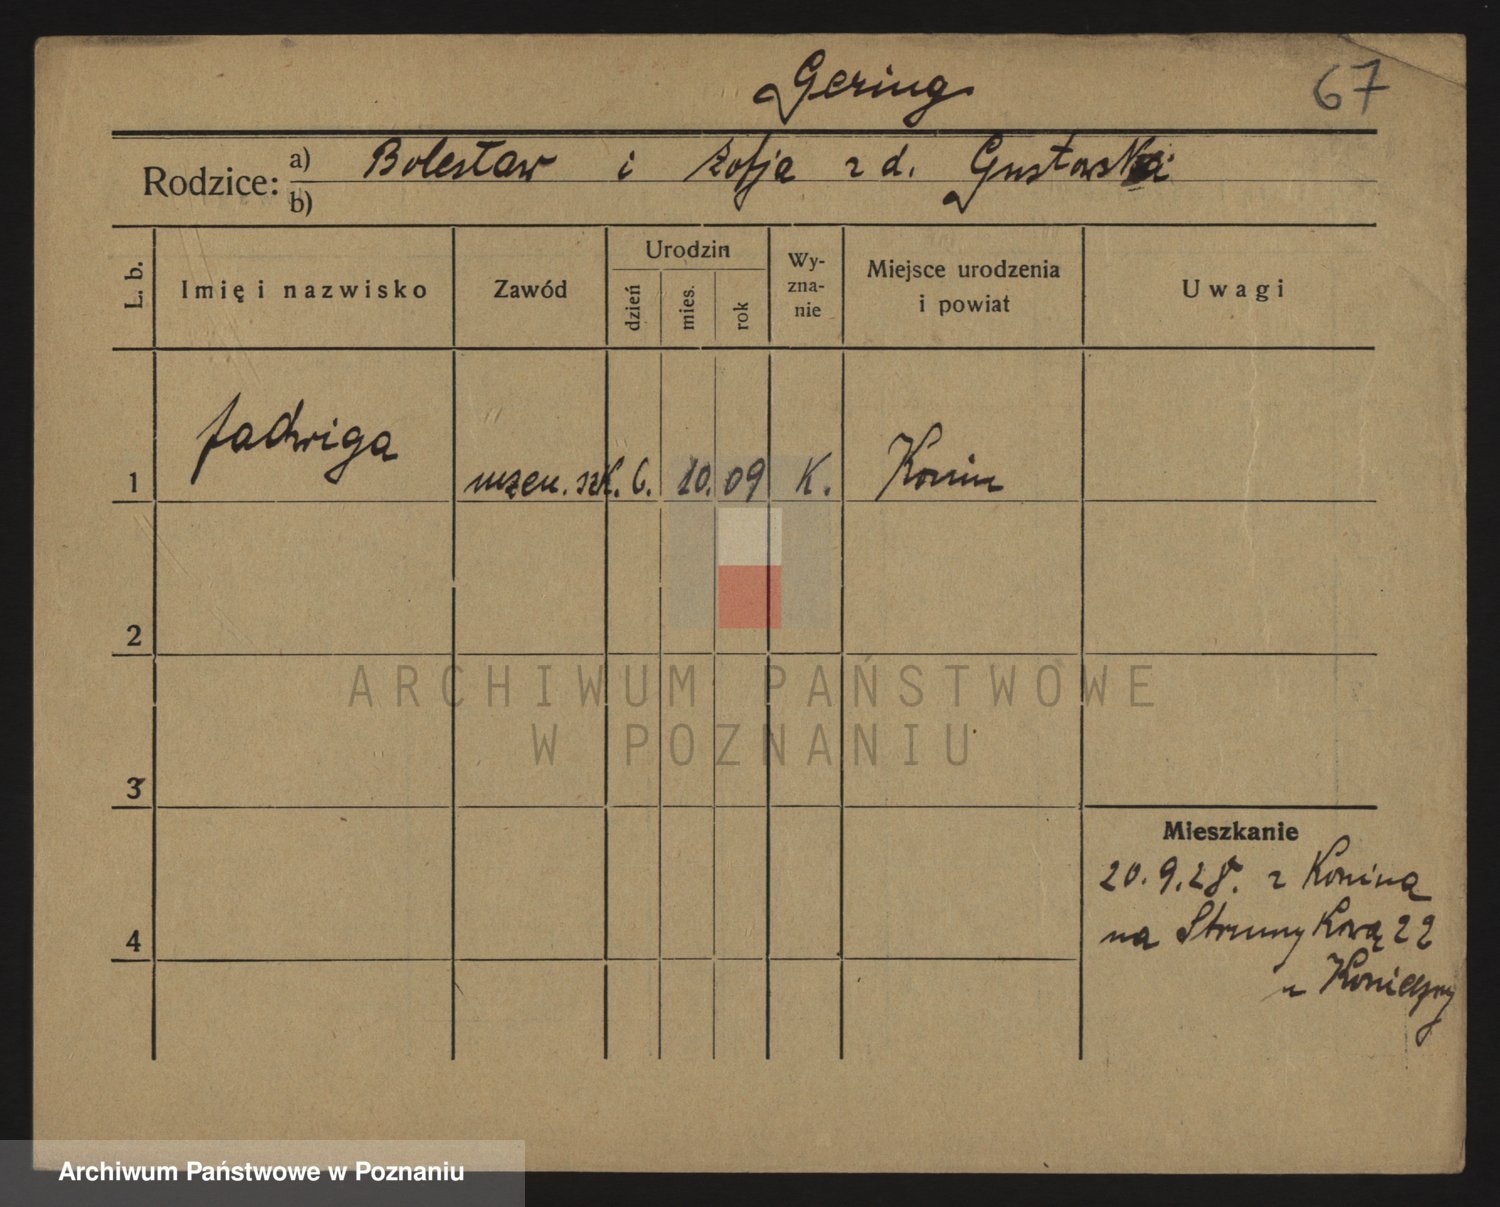 Gering
67
Rodzice: a) Bolesław i Zofja z d. Gustowska
b)
L. b.
Imię i nazwisko
Zawód
Urodzin
dzień
mies.
rok
Wy-
zna-
nie
Miejsce urodzenia
i powiat
Uwagi
1 Jadwiga uczen. szk. 6. 10. 09 K. Konin
2
ARCHIWUM PAŃSTWOWE
W POZNANIU
3
Mieszkanie
20.9.28. z Konina
na Strumykową 22
4
u
Archiwum Państwowe w Poznaniu